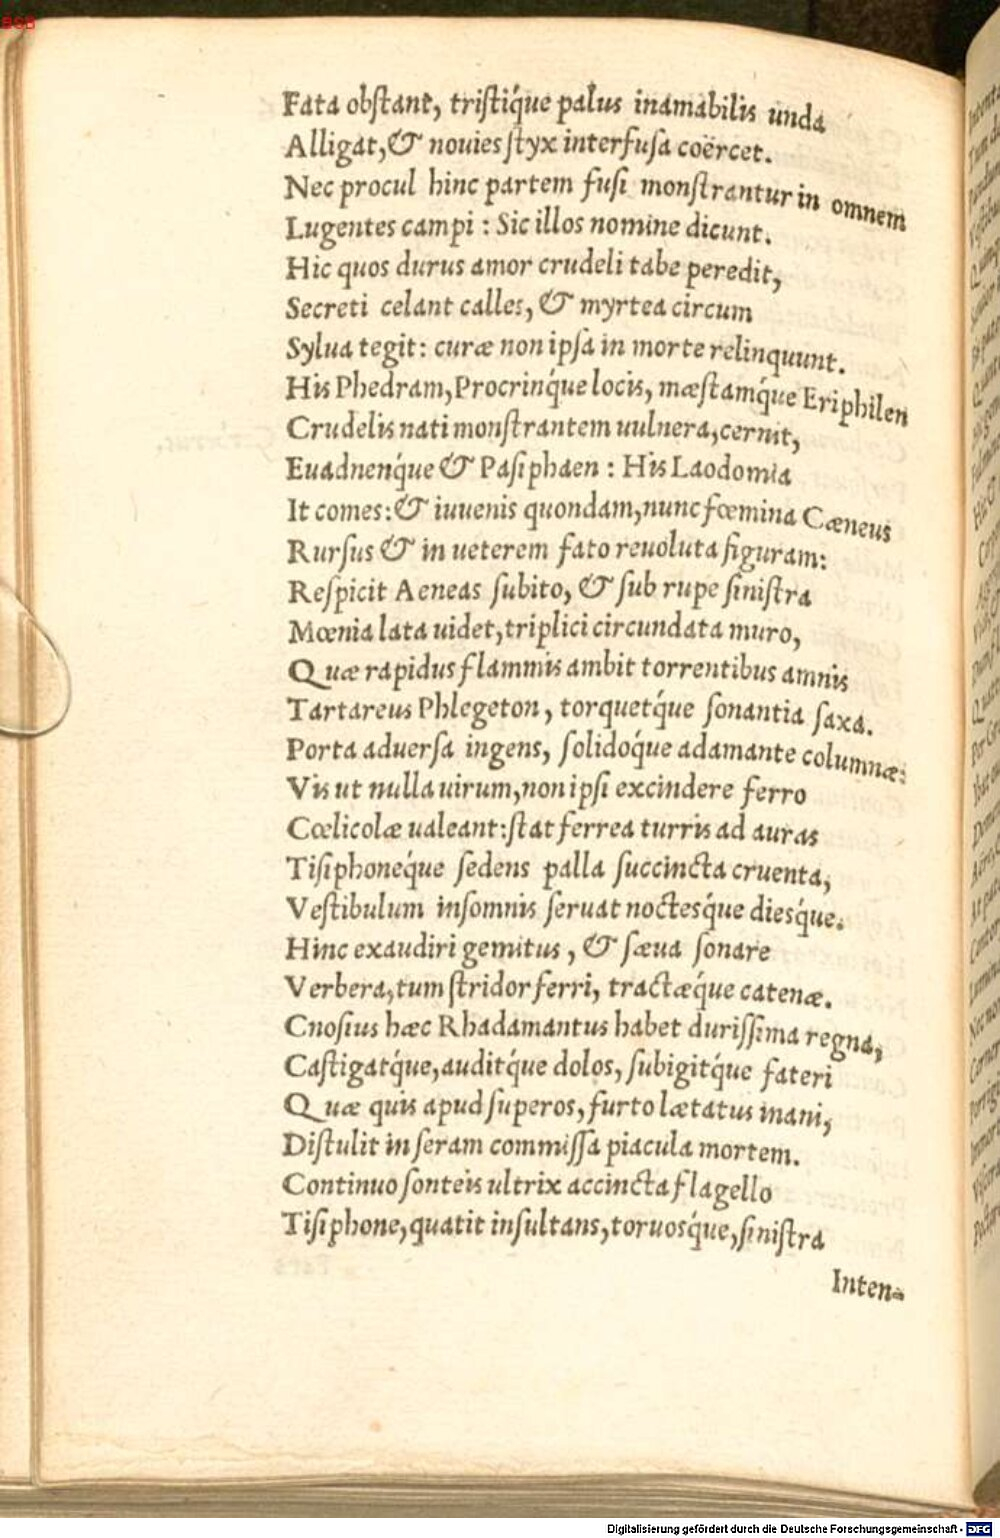 BSB
Fata obstant, tristiq́ue palus inamabilis unda
Alligat, & nouies styx interfusa coërcet.
Nec procul hinc partem fusi monstrantur in omnem
Lugentes campi: Sic illos nomine dicunt.
Hic quos durus amor crudeli tabe peredit,
Secreti celant calles, & myrtea circum
Sylua tegit: curæ non ipsa in morte relinquunt.
His Phedram, Procrinq́ue locis, mæstamq́ue Eriphilen
Crudelis nati monstrantem uulnera, cernit,
Euadnenq́ue & Pasiphaen: His Laodomia
It comes: & iuuenis quondam, nunc fœmina Cæneus
Rursus & in ueterem fato reuoluta figuram:
Respicit Aeneas subito, & sub rupe sinistra
Mœnia lata uidet, triplici circundata muro,
Quæ rapidus flammis ambit torrentibus amnis
Tartareus Phlegeton, torquetq́ue sonantia saxa.
Porta aduersa ingens, solidoq́ue adamante columnæ:
Vis ut nulla uirum, non ipsi excindere ferro
Cœlicolæ ualeant: stat ferrea turris ad auras
Tisiphoneq́ue sedens palla succincta cruenta,
Vestibulum insomnis seruat noctesq́ue diesq́ue.
Hinc exaudiri gemitus, & sæua sonare
Verbera, tum stridor ferri, tractæq́ue catenæ.
Cnosius hæc Rhadamantus habet durissima regna,
Castigatq́ue, auditq́ue dolos, subigitq́ue fateri
Quæ quis apud superos, furto lætatus inani,
Distulit in seram commissa piacula mortem.
Continuo sonteis ultrix accincta flagello
Tisiphone, quatit insultans, toruosq́ue, sinistra
Inten-
Digitalisierung gefördert durch die Deutsche Forschungsgemeinschaft - DFG